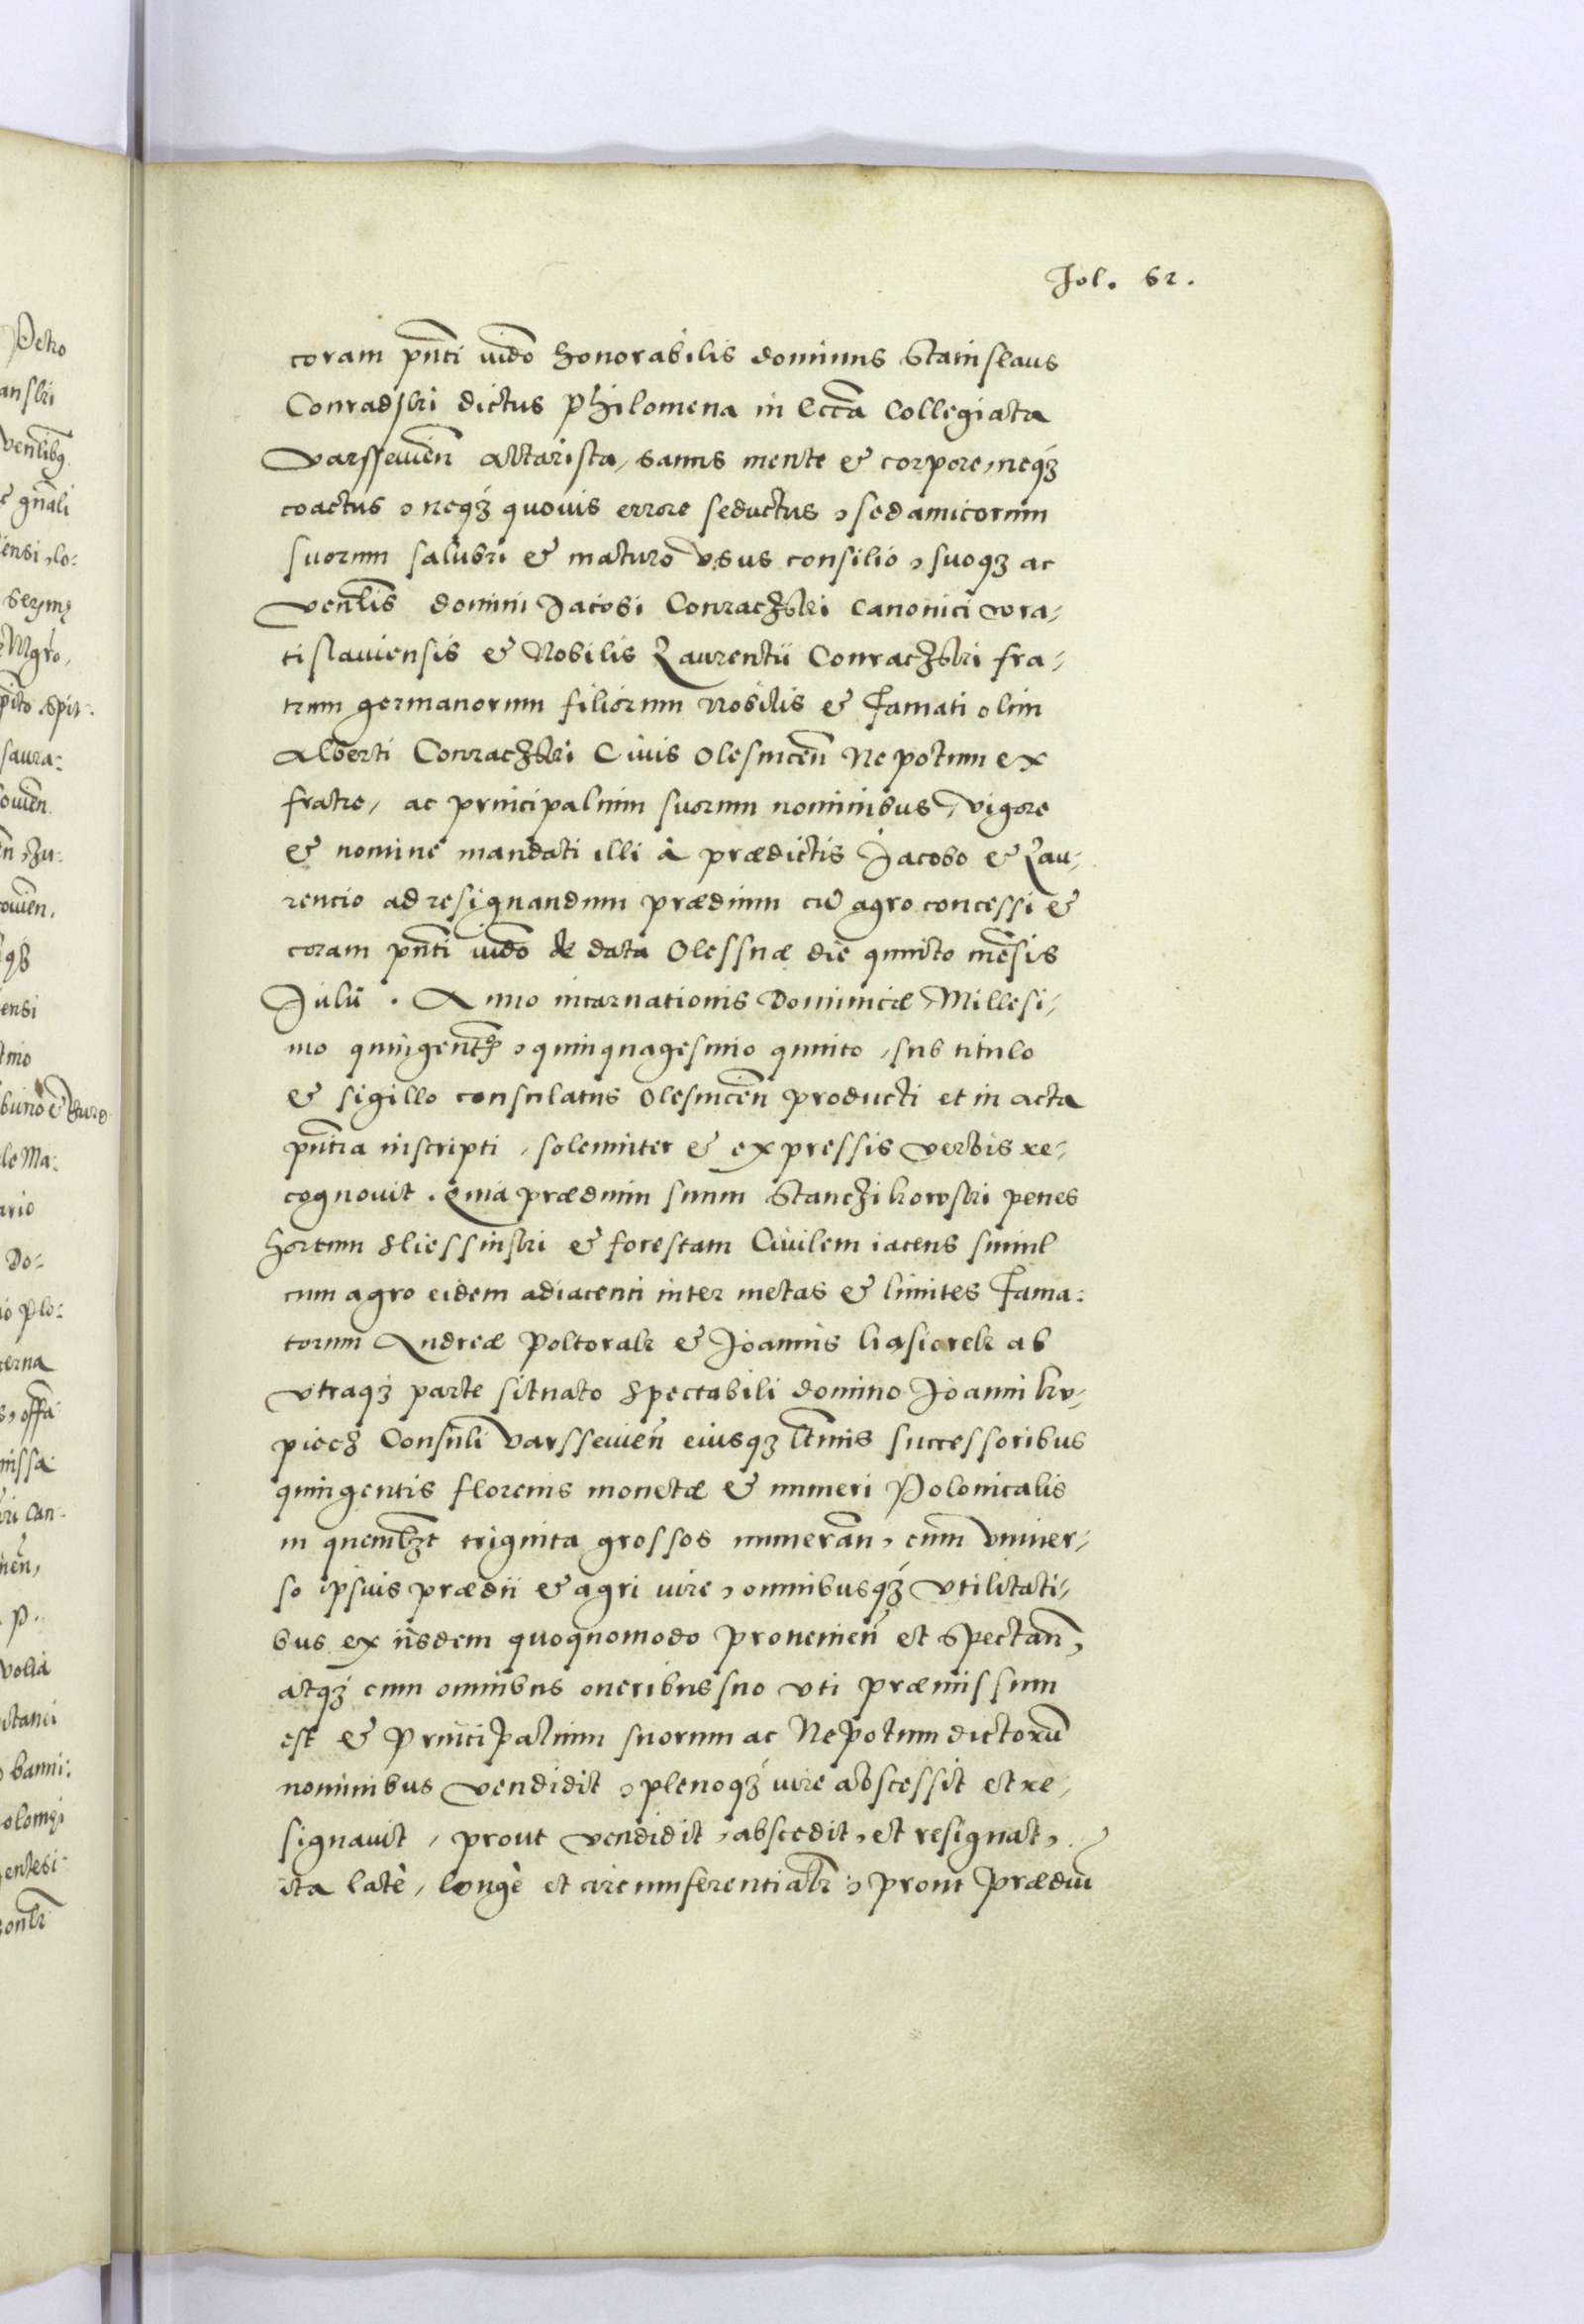 Fol. 62.
coram pnti iudo honorabilis dominus Stanislaus
Conradski dictus Philomena in Ecca Collegiata
Varsseuien Altarista, sanus mente & corpore, neqz
coactus, neqz quouis errore seductus, sed amicorum
suorum salubri & maturo vsus consilio, suoqz ac
Venlis domini Jacobi Conraczski Canonici wra-
tislauiensis & Nobilis Laurentii Conraczski fra-
trum germanorum filiorum Nobilis & Famati olim
Alberti Conraczski Ciuis Olesnicen Nepotum ex
fratre, ac principalium suorum nominibus, vigore
& nomine mandati illi à prædictis Jacobo & Lau-
rencio ad resignandum prædium cu agro concessi &
coram pnti iudo de data Olessnæ die quinto mensis
Julii. Anno incarnationis Dominicæ Millesi-
mo quingento, quinquagesimo quinto, sub titulo
& sigillo consulatus Olesnicen producti et in acta
pntia inscripti, solemniter & expressis verbis re-
cognouit. Quia prædium suum Stanczikowski penes
hortum Sliessinski & forestam Ciuilem iacens simul
cum agro eidem adiacenti inter metas & limites Fama:
torum Andreæ Poltorak & Joannis kasiorek ab
vtraqz parte situato Spectabili domino Joanni kv-
piecz Consuli Varsseuien eiusqz ltmis successoribus
quingentis florenis monetæ & numeri Polonicalis
in quemlzt triginta grossos numeran, cum vniuer-
so ipsius prædii & agri iure, omnibusqz vtilitati-
bus ex iisdem quoquomodo prouenien et spectan,
atqz cum omnibus oneribus suo vti præmissum
est & Principalium suorum ac Nepotum dictoru
nominibus vendidit, plenoqz iure abscessit et re-
signauit, prout vendidit, abscedit, et resignat,
ita latè, longè et circumferentialr, prout prædiu